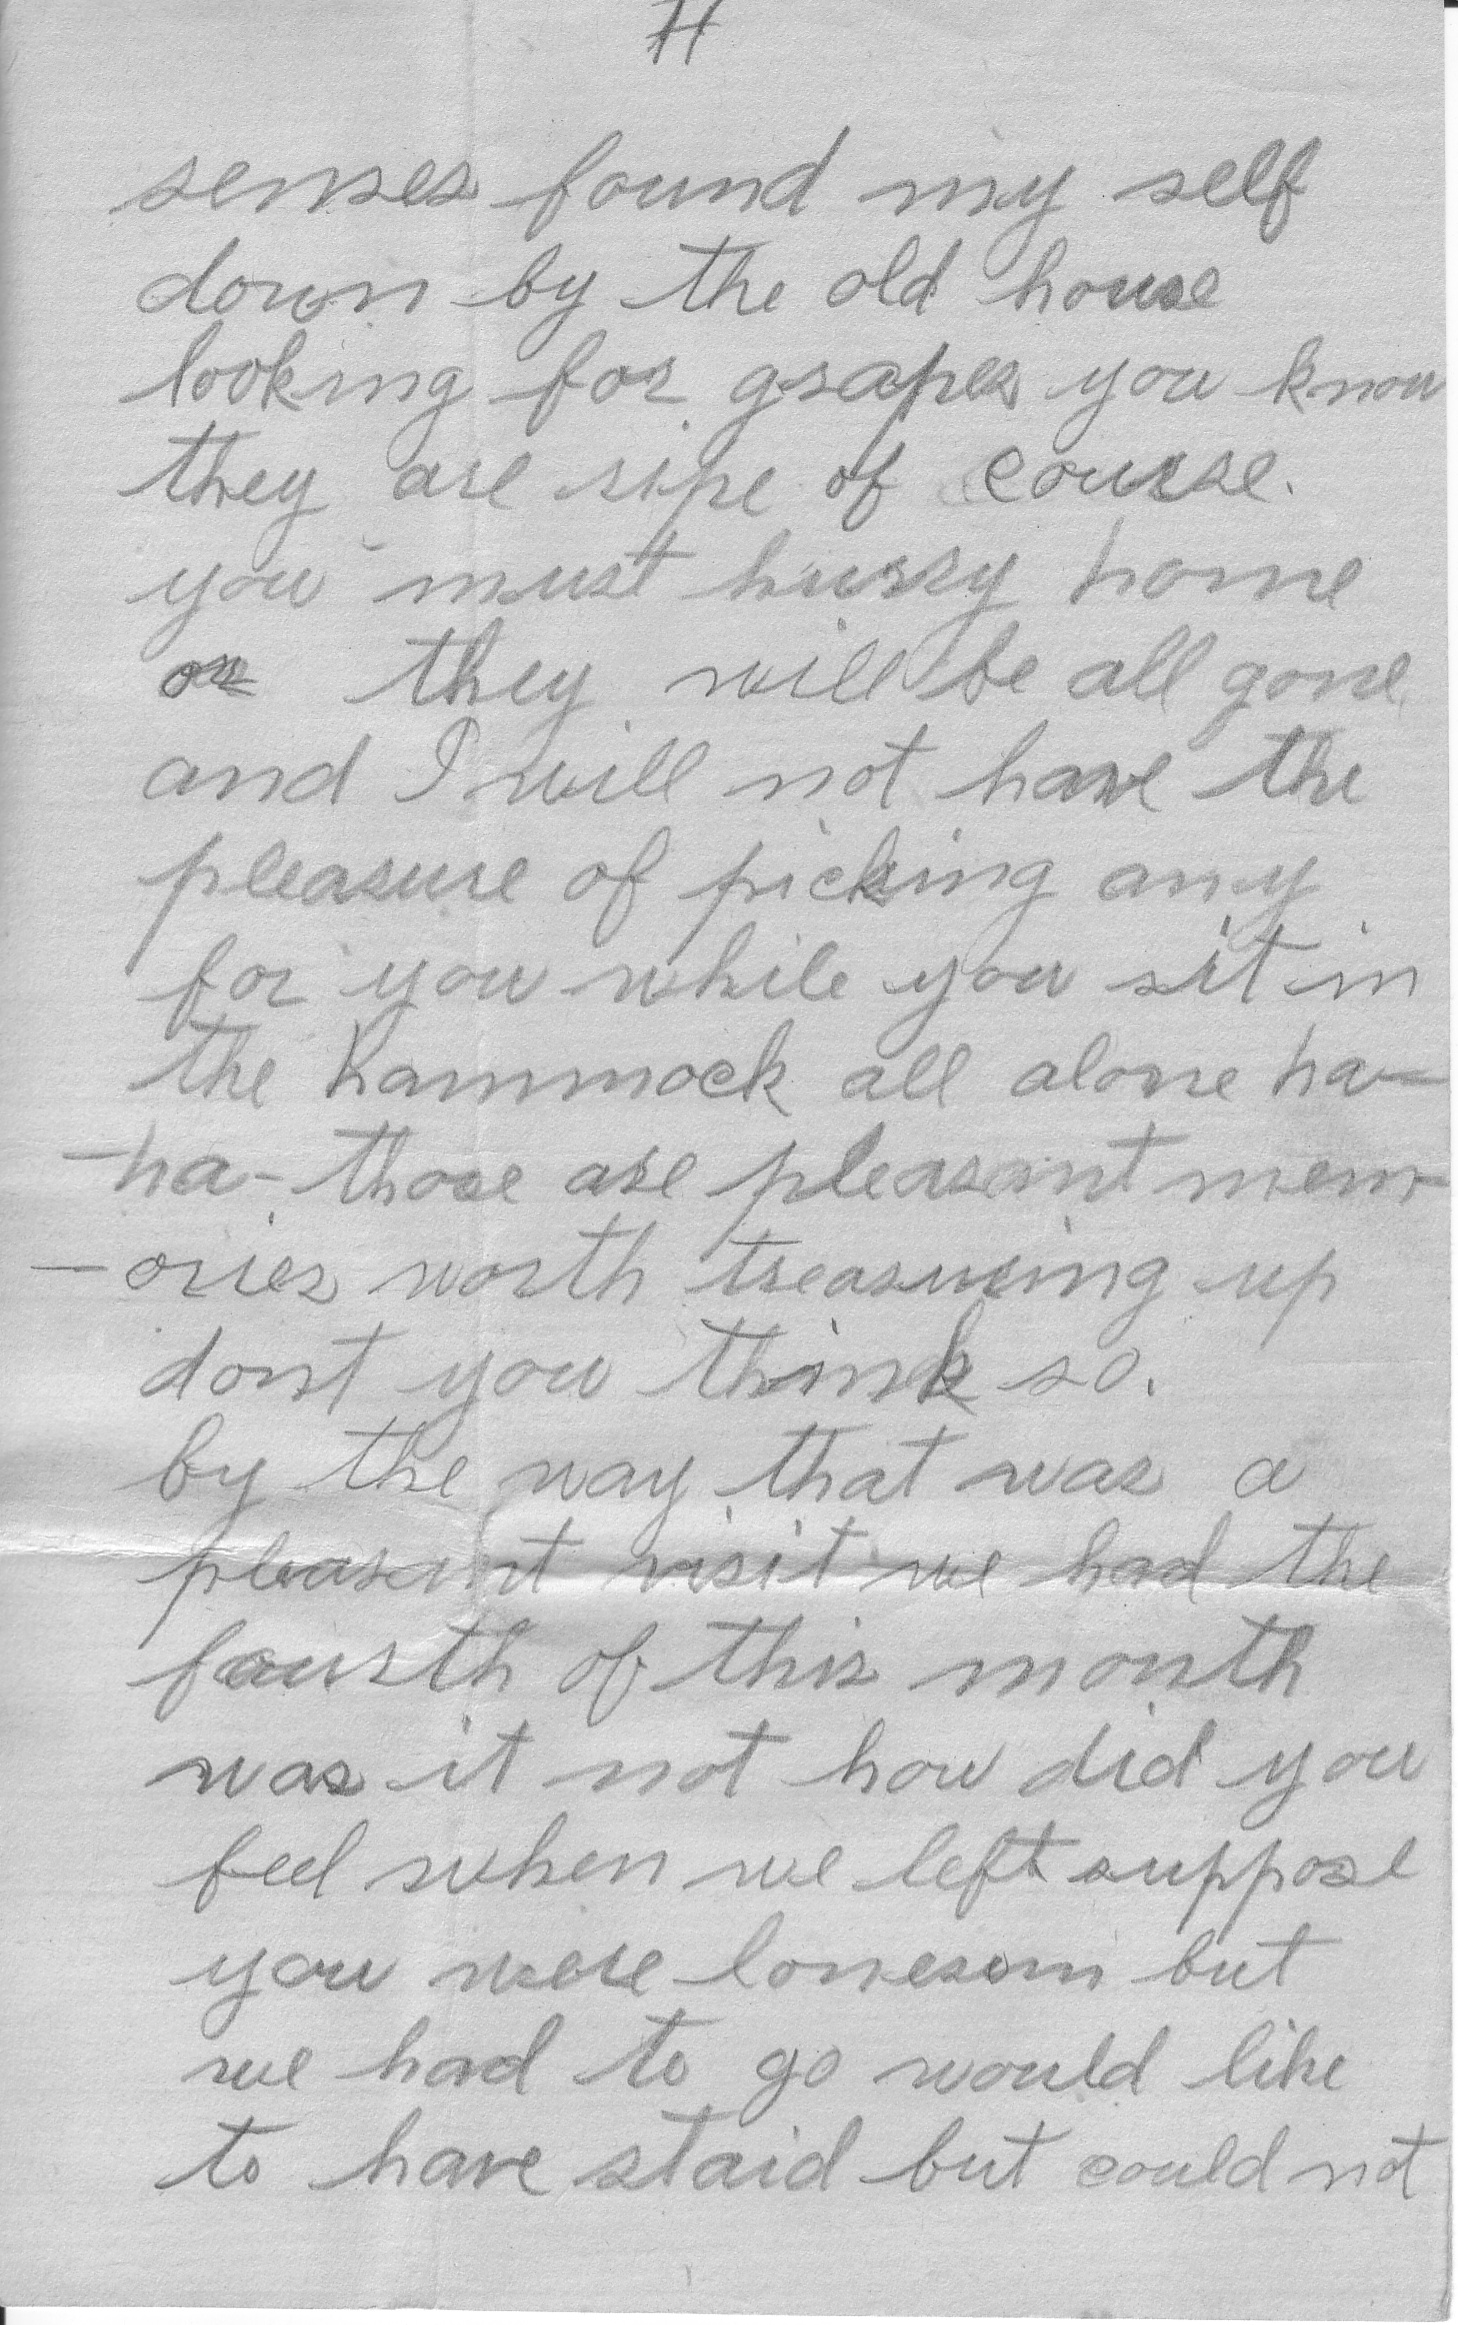 senses found my self
down by the old house
looking for grapes you know
they are ripe of course.
you must hurry home
or they will be all gone
and I will not have the
pleasure of picking any
for you while you sit in
the hammock all alone ha-
-ha- those are pleasant mem-
-ories worth treasuring up
dont you think so.
by the way that was a
pleasant visit we had the
fourth of this month
was it not how did you
feel when we left suppose
you were lonesom but
we had to go would like
to have staid but could not